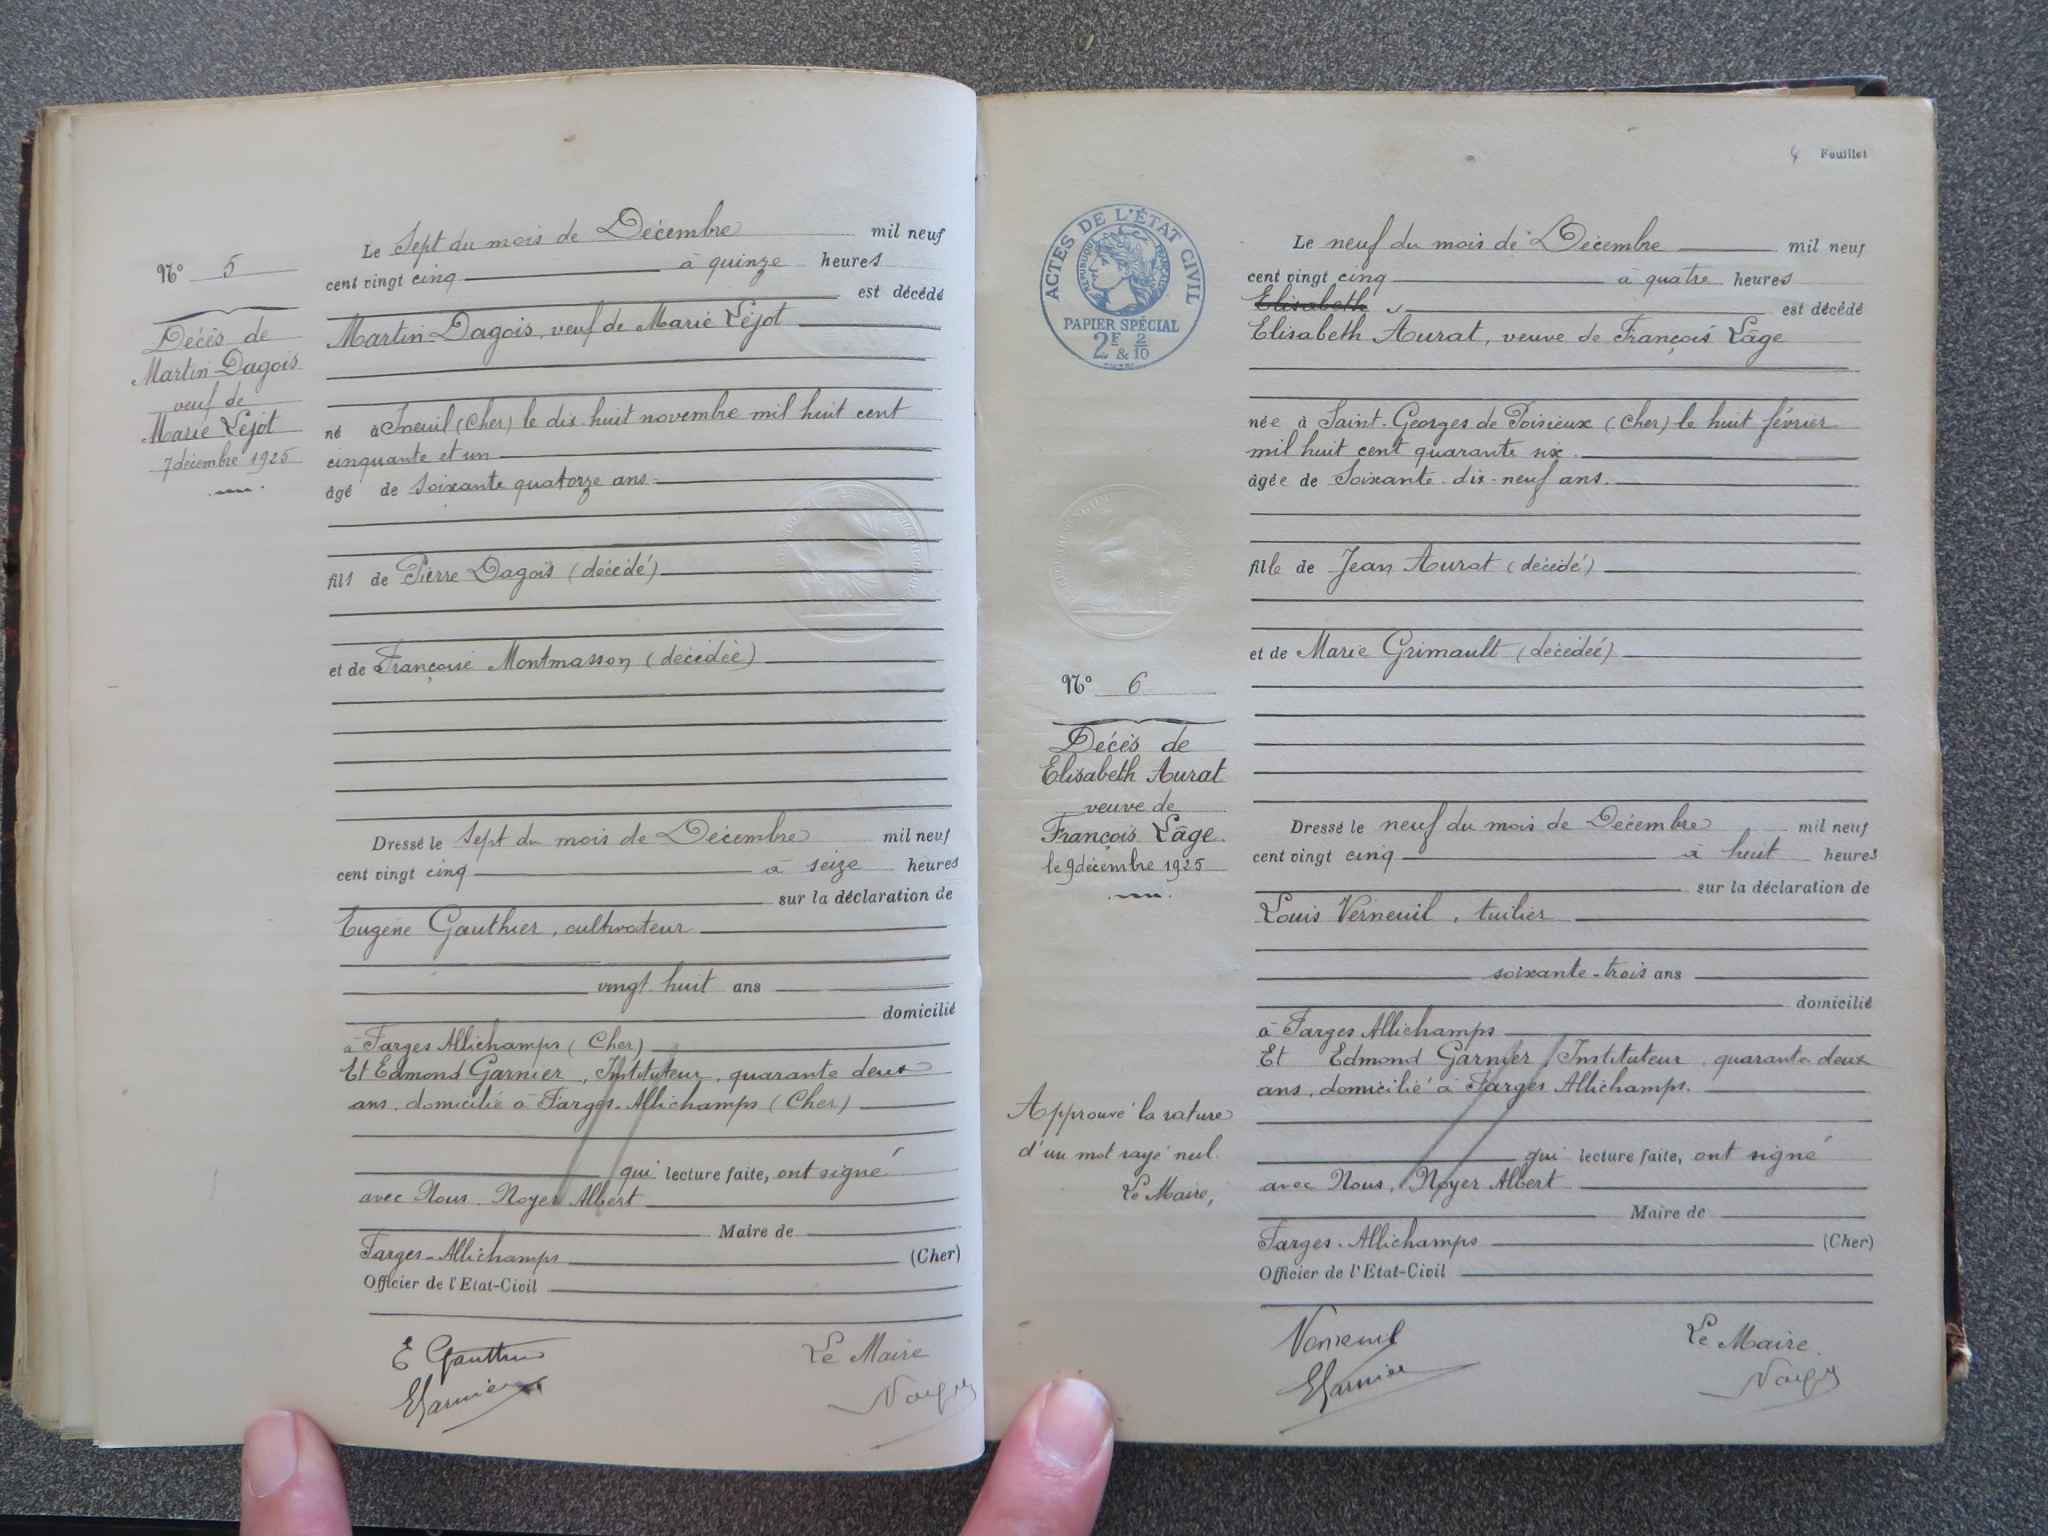 Le Sept du mois de Décembre mil neuf
N° 5
cent vingt cinq à quinze heures
est décédé
Décès de
Martin Dagois
veuf de
Marie Léjot
7 décembre 1925
Martin Dagois, veuf de Marie Léjot
né à Ineuil (Cher) le dix-huit novembre mil huit cent
cinquante et un
âgé de soixante quatorze ans
fils de Pierre Dagois (décédé)
et de Françoise Montmasson (décédée)
Dressé le sept du mois de Décembre mil neuf
cent vingt cinq à seize heures
sur la déclaration de
Eugène Gauthier, cultivateur
vingt huit ans
domicilié
à Farges Allichamps (Cher)
Et Edmond Garnier, Instituteur, quarante deux
ans, domicilié à Farges-Allichamps (Cher)
qui lecture faite, ont signé
avec Nous, Noyer Albert
Maire de
Farges-Allichamps (Cher)
Officier de l'Etat-Civil
E Gauthier
Le Maire
EGarnier
Noyer
4 Feuillet
ACTES DE L'ÉTAT CIVIL
RÉPUBLIQUE FRANÇAISE
PAPIER SPÉCIAL
2F & 2/10
Le neuf du mois de Décembre mil neuf
cent vingt cinq à quatre heures
Elisabeth est décédé
Elisabeth Aurat, veuve de François Lâge
née à Saint-Georges de Poisieux (Cher) le huit février
mil huit cent quarante six.
âgée de Soixante-dix-neuf ans.
fille de Jean Aurat (décédé)
et de Marie Grimault (décédée)
N° 6
Décès de
Elisabeth Aurat
veuve de
François Lâge.
le 9 décembre 1925
Dressé le neuf du mois de Décembre mil neuf
cent vingt cinq à huit heures
sur la déclaration de
Louis Verneuil, tuilier
soixante-trois ans
domicilié
à Farges Allichamps
Et Edmond Garnier, Instituteur, quarante deux
ans, domicilié à Farges Allichamps.
Approuvé la rature
d'un mot rayé nul.
Le Maire,
qui lecture faite, ont signé
avec Nous, Noyer Albert
Maire de
Farges-Allichamps (Cher)
Officier de l'Etat-Civil
Verneuil
Le Maire.
EGarnier
Noyer